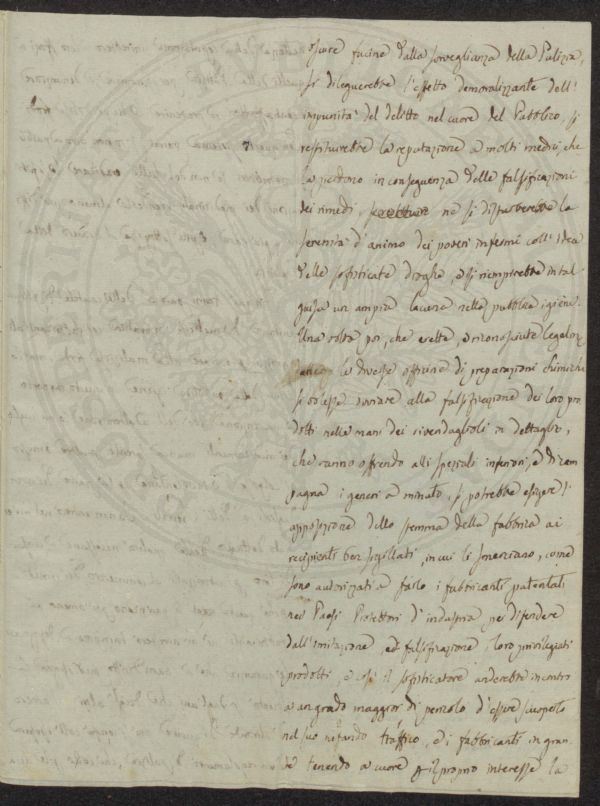 oscure fucine dalla sorveglianza della Pulizia,
si dileguerebbe l'effetto demoralizzante dell'
impunità del delitto nel cuore del Pubblico, si
restituirebbe la reputazione a molti medici, che
la perdono in conseguenza delle falsificazioni
dei rimedi, ne si disturberebbe la
serenità d'animo dei poveri infermi coll'idea
delle sofisticate droghe, e si riempirebbe in tal
guisa un ampia lacuna nella pubblica igiene.
Una volta poi, che erette, e riconosciute legalm
le diverse officine di preparazioni chimiche
si volesse ovviare alla falsificazione dei loro pro
dotti nelle mani dei rivendaglioli in dettaglio,
che vanno offrendo alli speziali inferiori, e di cam
pagna i generi a minuto, si potrebbe esigere l'
apposizione dello stemma della fabbrica ai
recipienti ben sigillati, in cui li smerciano, come
sono autorizzati a farlo i fabbricanti patentati
nei Paesi Protettori d'industria per difendere
dall'imitazione, ed falsificazione i loro privilegiati
prodotti, e così il sofisticatore anderebbe incontro
a un grado maggior di pericolo d'essere scoperto
nel suo nefando traffico, e i fabbricanti in gran
de tenendo a cuore il proprio interesse la